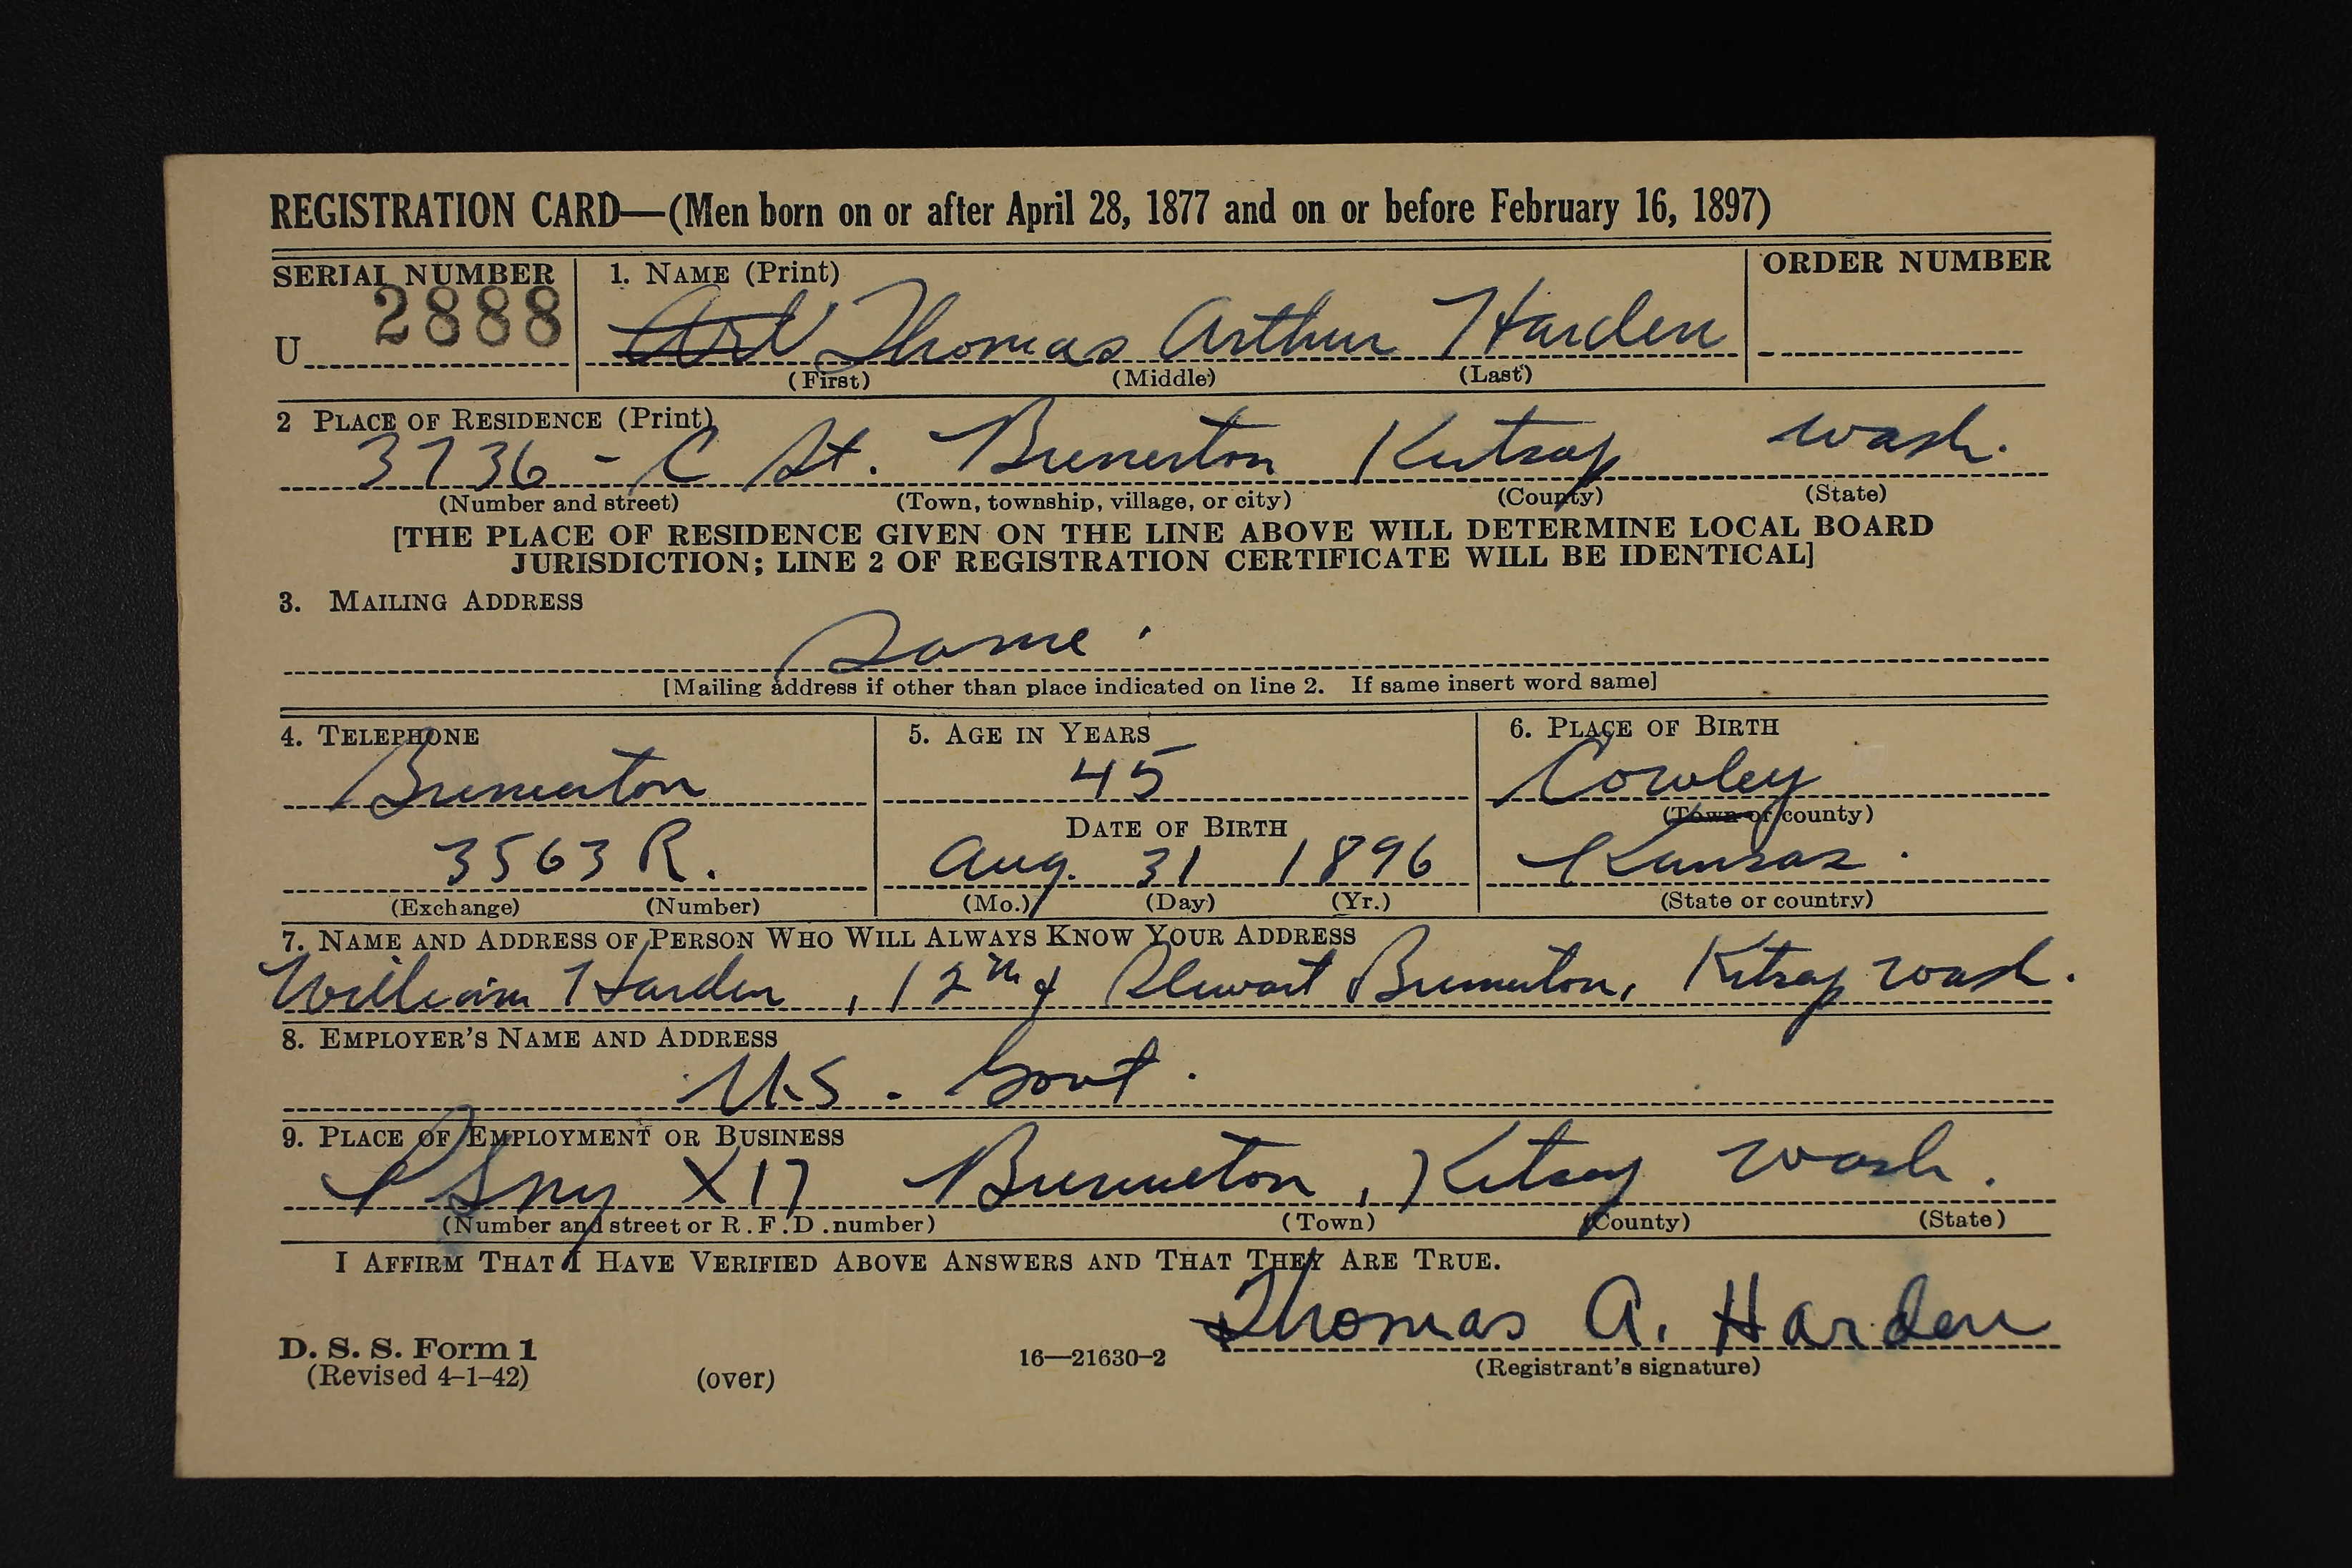 REGISTRATION CARD—(Men born on or after April 28, 1877 and on or before February 16, 1897)
SERIAL NUMBER 1. NAME (Print) ORDER NUMBER
U 2888 Art Thomas Arthur Harden
(First) (Middle) (Last)
2 PLACE OF RESIDENCE (Print)
3736 - C St. Bremerton Kitsap Wash.
(Number and street) (Town, township, village, or city) (County) (State)
[THE PLACE OF RESIDENCE GIVEN ON THE LINE ABOVE WILL DETERMINE LOCAL BOARD
JURISDICTION; LINE 2 OF REGISTRATION CERTIFICATE WILL BE IDENTICAL]
3. MAILING ADDRESS
Same
[Mailing address if other than place indicated on line 2. If same insert word same]
4. TELEPHONE 5. AGE IN YEARS 6. PLACE OF BIRTH
Bremerton 45 Cowley
(Town or county)
DATE OF BIRTH
3563 R. Aug. 31 1896 Kansas.
(Exchange) (Number) (Mo.) (Day) (Yr.) (State or country)
7. NAME AND ADDRESS OF PERSON WHO WILL ALWAYS KNOW YOUR ADDRESS
William Harden, 12th & Stewart Bremerton, Kitsap Wash.
8. EMPLOYER'S NAME AND ADDRESS
U.S. Govt.
9. PLACE OF EMPLOYMENT OR BUSINESS
PSNY X17 Bremerton, Kitsap Wash.
(Number and street or R.F.D. number) (Town) (County) (State)
I AFFIRM THAT I HAVE VERIFIED ABOVE ANSWERS AND THAT THEY ARE TRUE.
Thomas A. Harden
D. S. S. Form 1
(Revised 4-1-42) (over) 16—21630-2 (Registrant's signature)